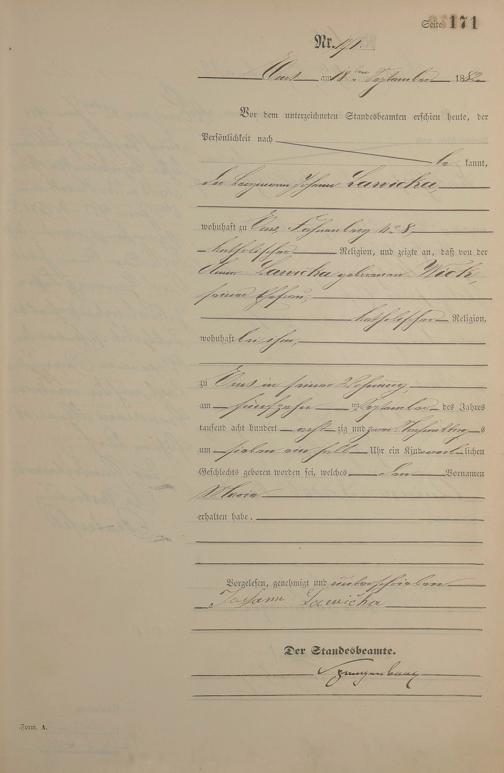 Seite 171
Nr. 171.
Ems am 18ten September 1882
Vor dem unterzeichneten Standesbeamten erschien heute, der
Persönlichkeit nach
be kannt,
der Bergmann Johann Lawicka,
wohnhaft zu Ems, 8,
katholischer Religion, und zeigte an, daß von der
Lawicka geborenen Wick,
seiner Ehefrau,
katholischer Religion,
wohnhaft bei ihm,
zu Ems in seiner Wohnung,
am fünfzehn ten September des Jahres
tausend acht hundert acht zig und zwei Vormittag s
um sieben ein halb Uhr ein Kind weib lichen
Geschlechts geboren worden sei, welches den Vornamen
Maria
erhalten habe.
Vorgelesen, genehmigt und unterschrieben
Johann Lawicka
Der Standesbeamte.
Form. A.